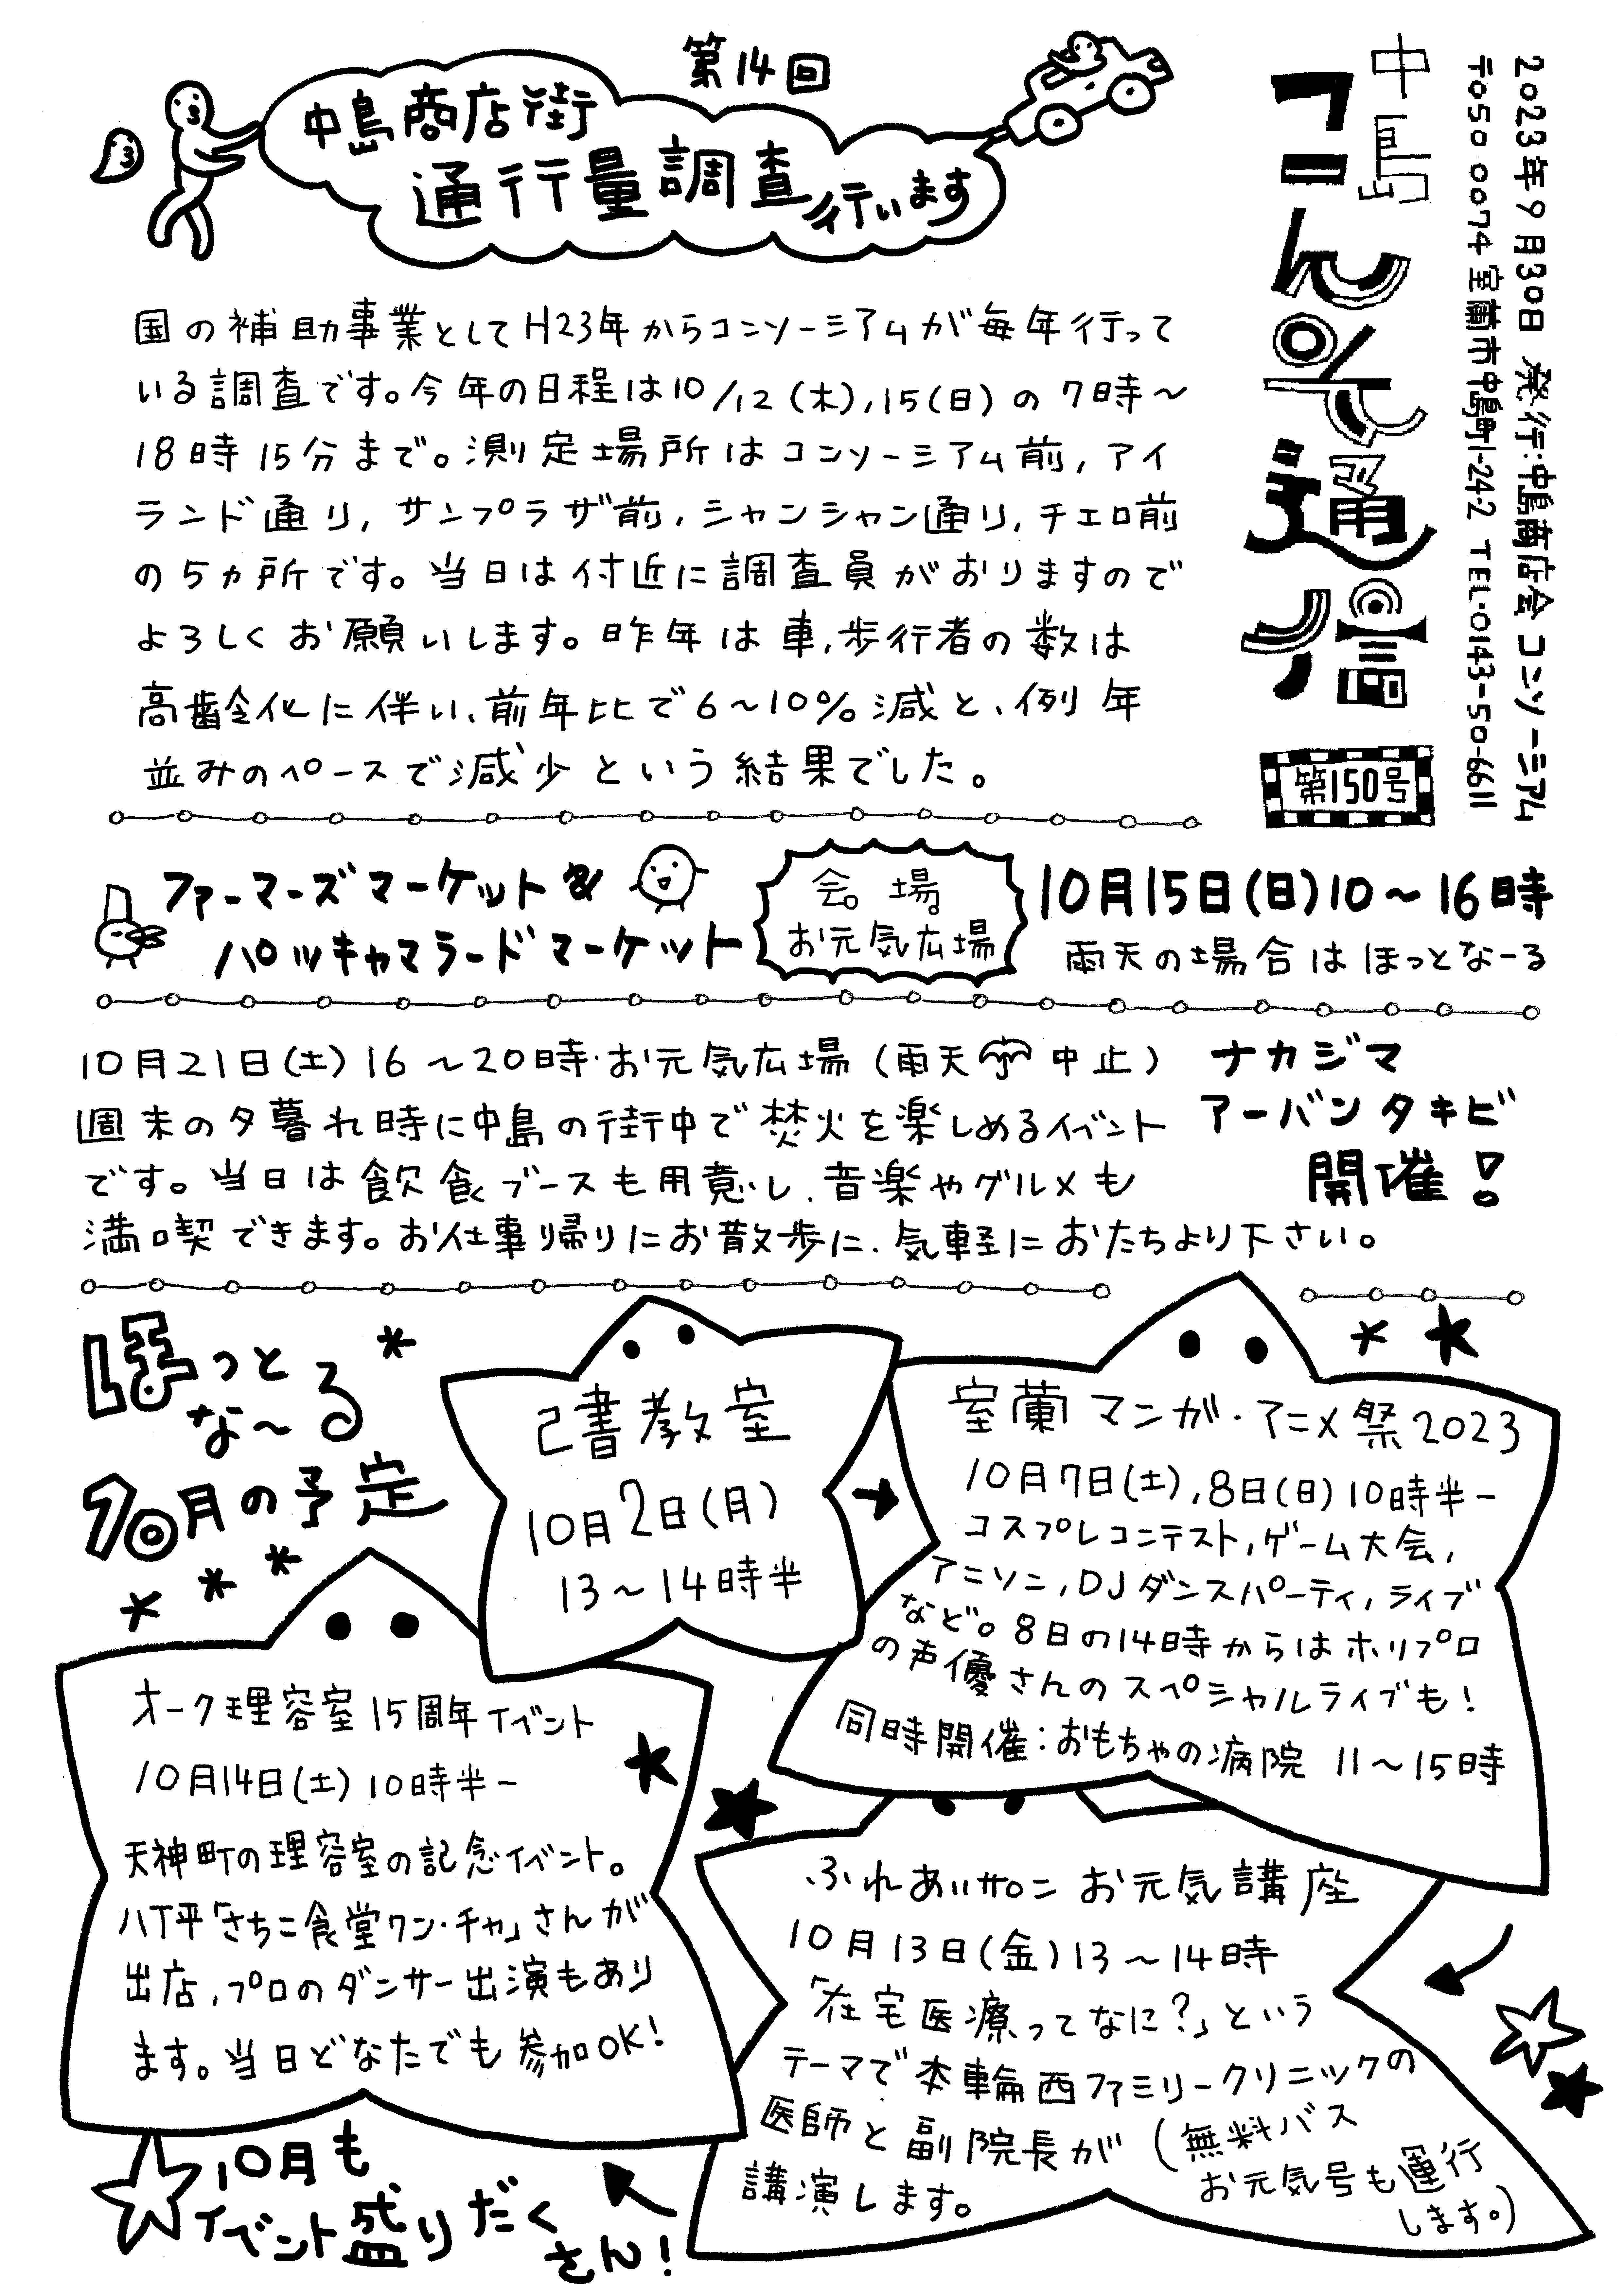 2023年9月30日 発行:中島商店会コンソーシアム
〒050-0074 室蘭市中島町1-24-2 TEL・0143-50-6611
中島
コンソ通信
第150号
第14回
中島商店街
通行量調査行います
国の補助事業としてH23年からコンソーシアムが毎年行って
いる調査です。今年の日程は10/12(木),15(日)の7時〜
18時15分まで。測定場所はコンソーシアム前,アイ
ランド通り,サンプラザ前,シャンシャン通り,チェロ前
の5ヵ所です。当日は付近に調査員がおりますので
よろしくお願いします。昨年は車,歩行者の数は
高齢化に伴い、前年比で6〜10%減と、例年
並みのペースで減少という結果でした。
ファーマーズマーケット&
パッキャマラードマーケット
会場
お元気広場
10月15日(日)10〜16時
雨天の場合はほっとなーる
10月21日(土)16〜20時・お元気広場(雨天中止)
ナカジマ
アーバンタキビ
開催!
週末の夕暮れ時に中島の街中で焚火を楽しめるイベント
です。当日は飲食ブースも用意し、音楽やグルメも
満喫できます。お仕事帰りにお散歩に、気軽におたちより下さい。
ほっと
な〜る
10月の予定
己書教室
10月2日(月)
13〜14時半
室蘭マンガ・アニメ祭2023
10月7日(土),8日(日)10時半−
コスプレコンテスト,ゲーム大会,
アニソン,DJダンスパーティ,ライブ
など。8日の14時からはホリプロ
の声優さんのスペシャルライブも!
同時開催:おもちゃの病院 11〜15時
オーク理容室15周年イベント
10月14日(土)10時半−
天神町の理容室の記念イベント。
八丁平「さちこ食堂ワン・チャ」さんが
出店,プロのダンサー出演もあり
ます。当日どなたでも参加OK!
ふれあいサロン お元気講座
10月13日(金)13〜14時
「在宅医療ってなに?」という
テーマで本輪西ファミリークリニックの
医師と副院長が
講演します。
(無料バス
お元気号も運行
します。)
10月も
イベント盛りだく
さん!